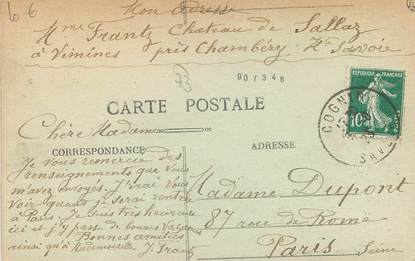 Mon adresse
Mme Frantz Chateau de Sallaz
à Vimines près Chambéry Hte Savoie
73
90/346
REPUBLIQUE FRANÇAISE
10
COGN
SAV
CARTE POSTALE
Chère Madame
CORRESPONDANCE
ADRESSE
Je vous remercie des
renseignements que vous
m'avez envoyés. J'irai vous
voir quand je serai rentrée
à Paris. Je suis très heureuse
ici et j'y passe de bonnes vacances
Bonnes amitiés
ainsi qu'à Mademoiselle J. Frantz
Madame Dupont
87 rue de Rome
Paris
Seine